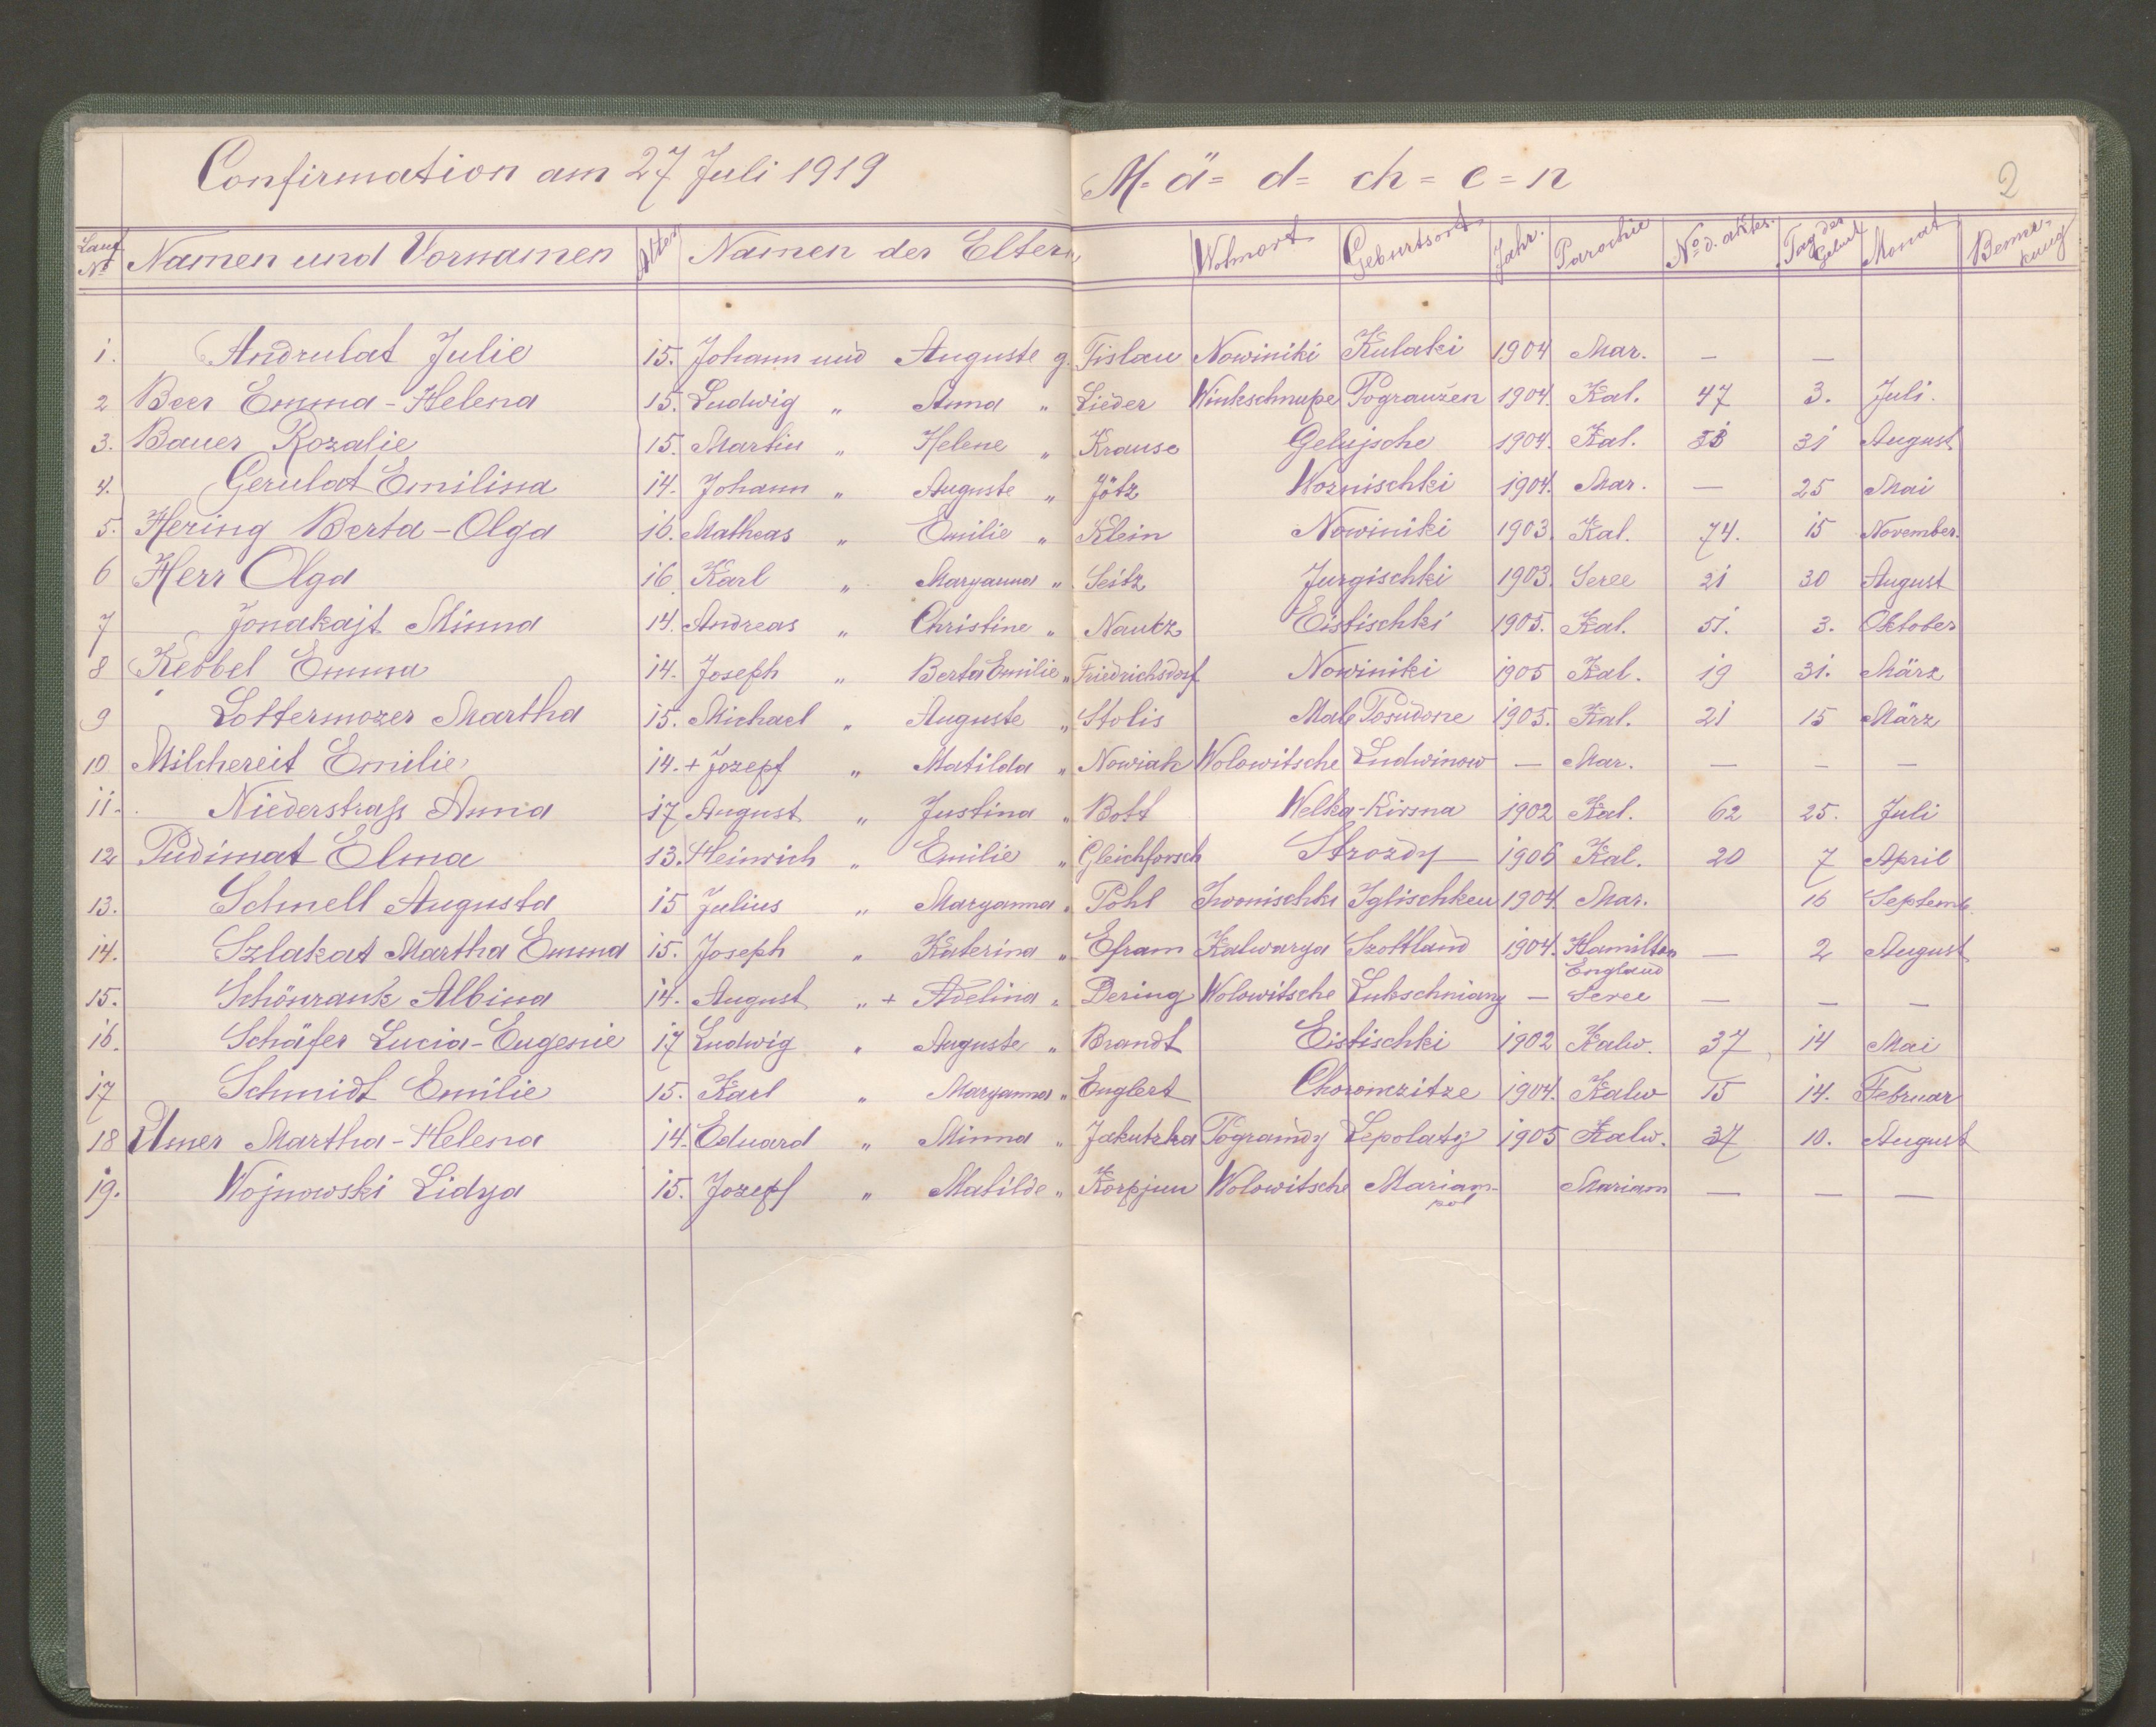 Confirmation am 27 Juli 1919 M= ä= d= ch= e= n 2
Lauf Nº Namen und Vornamen Alter Namen der Eltern Wohnort Geburtsort Jahr. Parochie Nº d. aktes. Tag der Geburt Monat Bemerkung
1. Andrulat Julie 15. Johann und Auguste g. Tislau Nowiniki Kulaki 1904 Mar. — —
2 Beer Emma-Helena 15. Ludwig " Anna " Lieder Winkschnupe Pograuzen 1904. Kal. 47 3. Juli.
3. Bauer Rozalie 15. Martin " Helene " Krause Gelujsche 1904. Kal. 31 August
4. Gerulat Emilina 14. Johann " Auguste " Jötz Woznischki 1904. Mar. — 25 Mai
5. Hering Berta-Olga 16. Matheas " Emilie " Klein Nowiniki 1903. Kal. 74. 15 November.
6 Herr Olga 16 Karl " Maryanna " Seitz Jurgischki 1903. Seree 21 30 August
7 Jonakajt Minna 14. Andreas " Christine " Nautz Eistischki 1905. Kal. 51. 3. Oktober
8 Kebbel Emma 14. Joseph " Berta Emilie " Friedrichsdorf Nowiniki 1905 Kal. 19 31. März
9 Lottermozer Martha 15. Michael " Auguste " Stolis Male Posudone 1905. Kal. 21 15 März
10 Milchereit Emilie 14. + Jozepf " Matilda " Nowiak Wolowitsche Ludwinow — Mar. — — —
11. Niederstraß Anna 17 August " Justina " Bott Welka-Kirsna 1902 Kal. 62 25. Juli
12 Pudimat Elma 13. Heinrich " Emilie " Gleichforsch Strozdy 1906 Kal. 20 7 April
13. Schnell Augusta 15 Julius " Maryanna " Pohl Iwonischki Iglischken 1904 Mar. 16 Septemb.
14. Szlakat Martha Emma 15. Joseph " Katerina " Efram Kalwarya Szottland 1904. Hamilton England — 2 August
15. Schönrank Albina 14. August " + Adelina " Dering Wolowitsche Lukschniany — Seree — — —
16. Schäfer Lucia-Eugenie 17 Ludwig " Auguste " Brandt Eistischki 1902 Kalw. 37 14 Mai
17 Schmidt Emilie 15. Karl " Maryanna " Englert Choromzitze 1904. Kalw 15 14. Februar
18 Umer Martha-Helena 14. Eduard " Minna " Jakutzka Pograudy Lepolaty 1905 Kalw. 34 10. August
19. Wojnowski Lidya 15. Jozepf " Matilde " Korpjun Wolowitsche Mariampol Mariam — — —